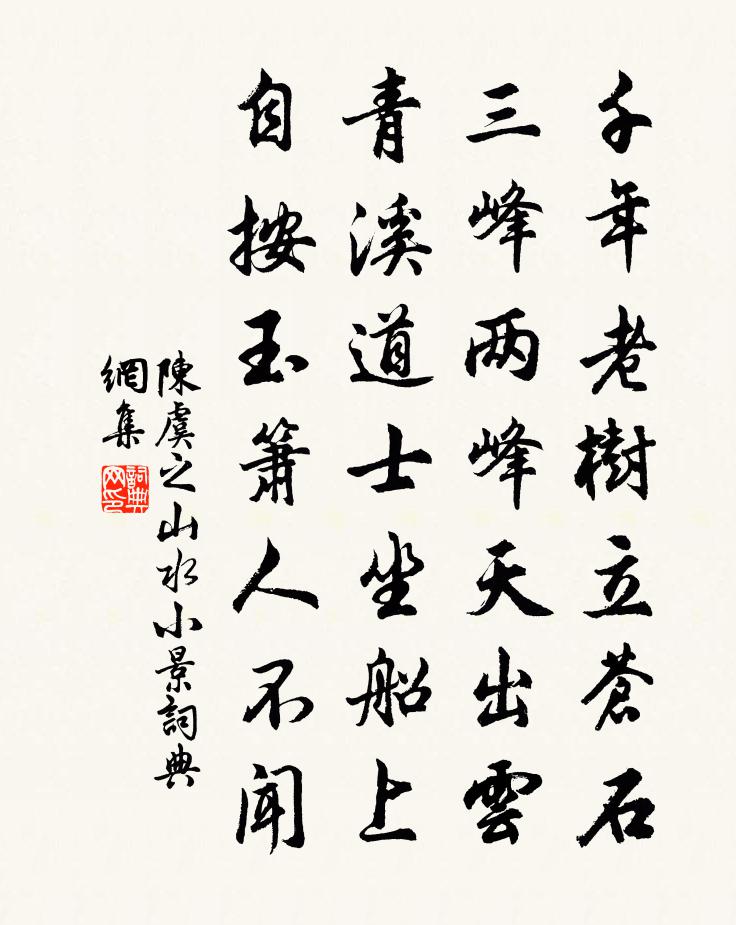 千年老樹立蒼石
三峰两峰天出雲
青溪道士坐船上
自按玉簫人不闻
陳虞之山水小景詞典
網集
詞典
网印